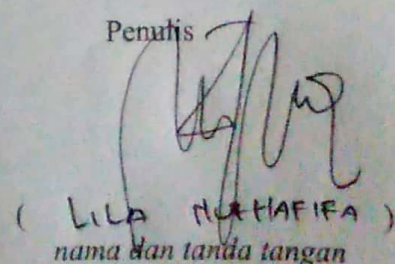 Penulis
( LILA HAFIFA )
nama dan tanda tangan